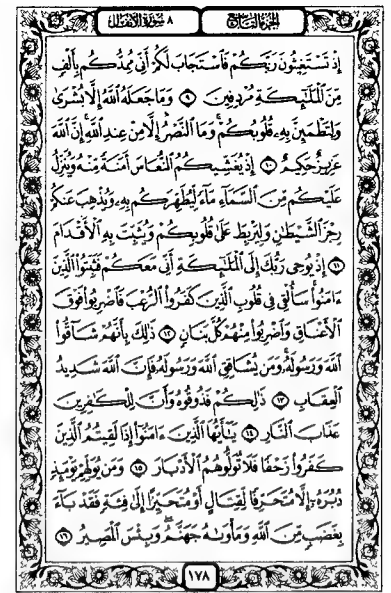 الجزء التاسع ٨ سورة الأنفال
إِذْ تَسْتَغِيثُونَ رَبَّكُمْ فَٱسْتَجَابَ لَكُمْ أَنِّي مُمِدُّكُم بِأَلْفٍ
مِّنَ ٱلْمَلَٰٓئِكَةِ مُرْدِفِينَ ٩ وَمَا جَعَلَهُ ٱللَّهُ إِلَّا بُشْرَىٰ
وَلِتَطْمَئِنَّ بِهِۦ قُلُوبُكُمْ وَمَا ٱلنَّصْرُ إِلَّا مِنْ عِندِ ٱللَّهِ إِنَّ ٱللَّهَ
عَزِيزٌ حَكِيمٌ ١٠ إِذْ يُغَشِّيكُمُ ٱلنُّعَاسَ أَمَنَةً مِّنْهُ وَيُنَزِّلُ
عَلَيْكُم مِّنَ ٱلسَّمَآءِ مَآءً لِّيُطَهِّرَكُم بِهِۦ وَيُذْهِبَ عَنكُمْ
رِجْزَ ٱلشَّيْطَٰنِ وَلِيَرْبِطَ عَلَىٰ قُلُوبِكُمْ وَيُثَبِّتَ بِهِ ٱلْأَقْدَامَ
١١ إِذْ يُوحِى رَبُّكَ إِلَى ٱلْمَلَٰٓئِكَةِ أَنِّى مَعَكُمْ فَثَبِّتُوا۟ ٱلَّذِينَ
ءَامَنُوا۟ سَأُلْقِى فِى قُلُوبِ ٱلَّذِينَ كَفَرُوا۟ ٱلرُّعْبَ فَٱضْرِبُوا۟ فَوْقَ
ٱلْأَعْنَاقِ وَٱضْرِبُوا۟ مِنْهُمْ كُلَّ بَنَانٍ ١٢ ذَٰلِكَ بِأَنَّهُمْ شَآقُّوا۟
ٱللَّهَ وَرَسُولَهُۥ وَمَن يُشَاقِقِ ٱللَّهَ وَرَسُولَهُۥ فَإِنَّ ٱللَّهَ شَدِيدُ
ٱلْعِقَابِ ١٣ ذَٰلِكُمْ فَذُوقُوهُ وَأَنَّ لِلْكَٰفِرِينَ
عَذَابَ ٱلنَّارِ ١٤ يَٰٓأَيُّهَا ٱلَّذِينَ ءَامَنُوٓا۟ إِذَا لَقِيتُمُ ٱلَّذِينَ
كَفَرُوا۟ زَحْفًا فَلَا تُوَلُّوهُمُ ٱلْأَدْبَارَ ١٥ وَمَن يُوَلِّهِمْ يَوْمَئِذٍ
دُبُرَهُۥٓ إِلَّا مُتَحَرِّفًا لِّقِتَالٍ أَوْ مُتَحَيِّزًا إِلَىٰ فِئَةٍ فَقَدْ بَآءَ
بِغَضَبٍ مِّنَ ٱللَّهِ وَمَأْوَىٰهُ جَهَنَّمُ وَبِئْسَ ٱلْمَصِيرُ ١٦
١٧٨